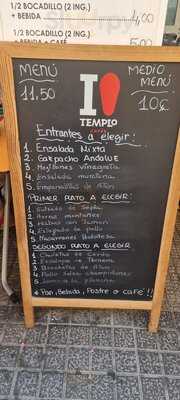 1/2 BOCADILLO (2 ING.)
+ BEBIDA
4,00
1/2 BOCADILLO (2 ING.)
+ BEBIDA + CAFÉ
5,00
MENÚ
11,50
MEDIO
MENÚ
10€
I
TEMPLO
CAFÉ
Entrantes a elegir:
1. Ensalada Mixta
2. Gazpacho Andaluz
3. Mejillones vinagreta
4. Ensalada murciana
5. Empanadillas de Atún
PRIMER PLATO A ELEGIR:
1.
2.
3. con Jamón
4. Estofado de pollo
5. Macarrones Boloñesa
SEGUNDO PLATO A ELEGIR
1. Chuletas de Cerdo
2. Escalope de Ternera
3. de Atún
4. Pollo salsa champiñones
5. Lomo a la plancha
* Pan, Bebida, Postre o café!!